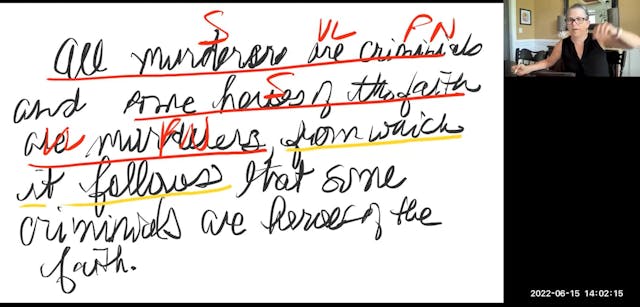 S VL PN
All murderers are criminals
and some heroes of the faith
S
are murderers, from which
VL PN
it follows that some
criminals are heroes of the
faith.
2022-06-15 14:02:15